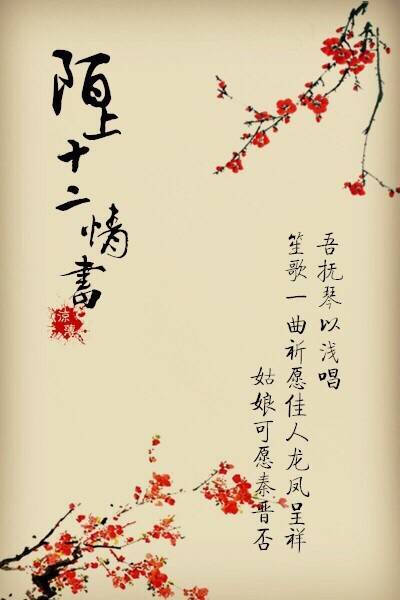 陌上十二情書
涼薄
吾抚琴以浅唱
笙歌一曲祈愿佳人龙凤呈祥
姑娘可愿秦晋否